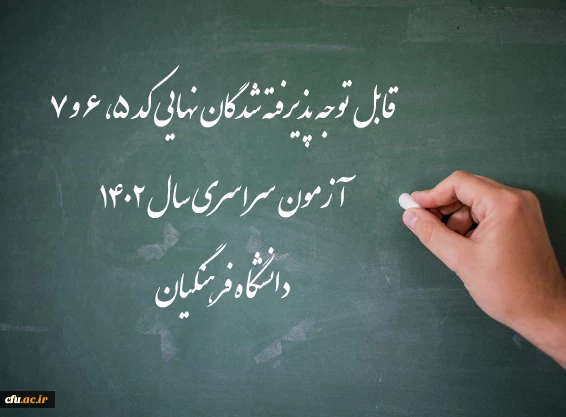 قابل توجه پذیرفته شدگان نهایی کد ۵، ۶ و ۷
آزمون سراسری سال ۱۴۰۲
دانشگاه فرهنگیان
cfu.ac.ir